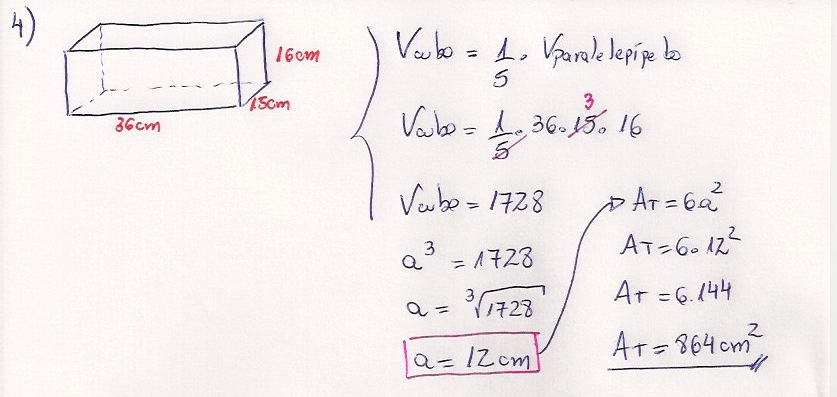 4)
16cm
15cm
36cm
Vcubo = 1/5 . Vparalelepípedo
Vcubo = 1/5 . 36 . 15 . 16
3
Vcubo = 1728
a³ = 1728
a = ³√1728
a = 12 cm
AT = 6a²
AT = 6 . 12²
AT = 6.144
AT = 864 cm²